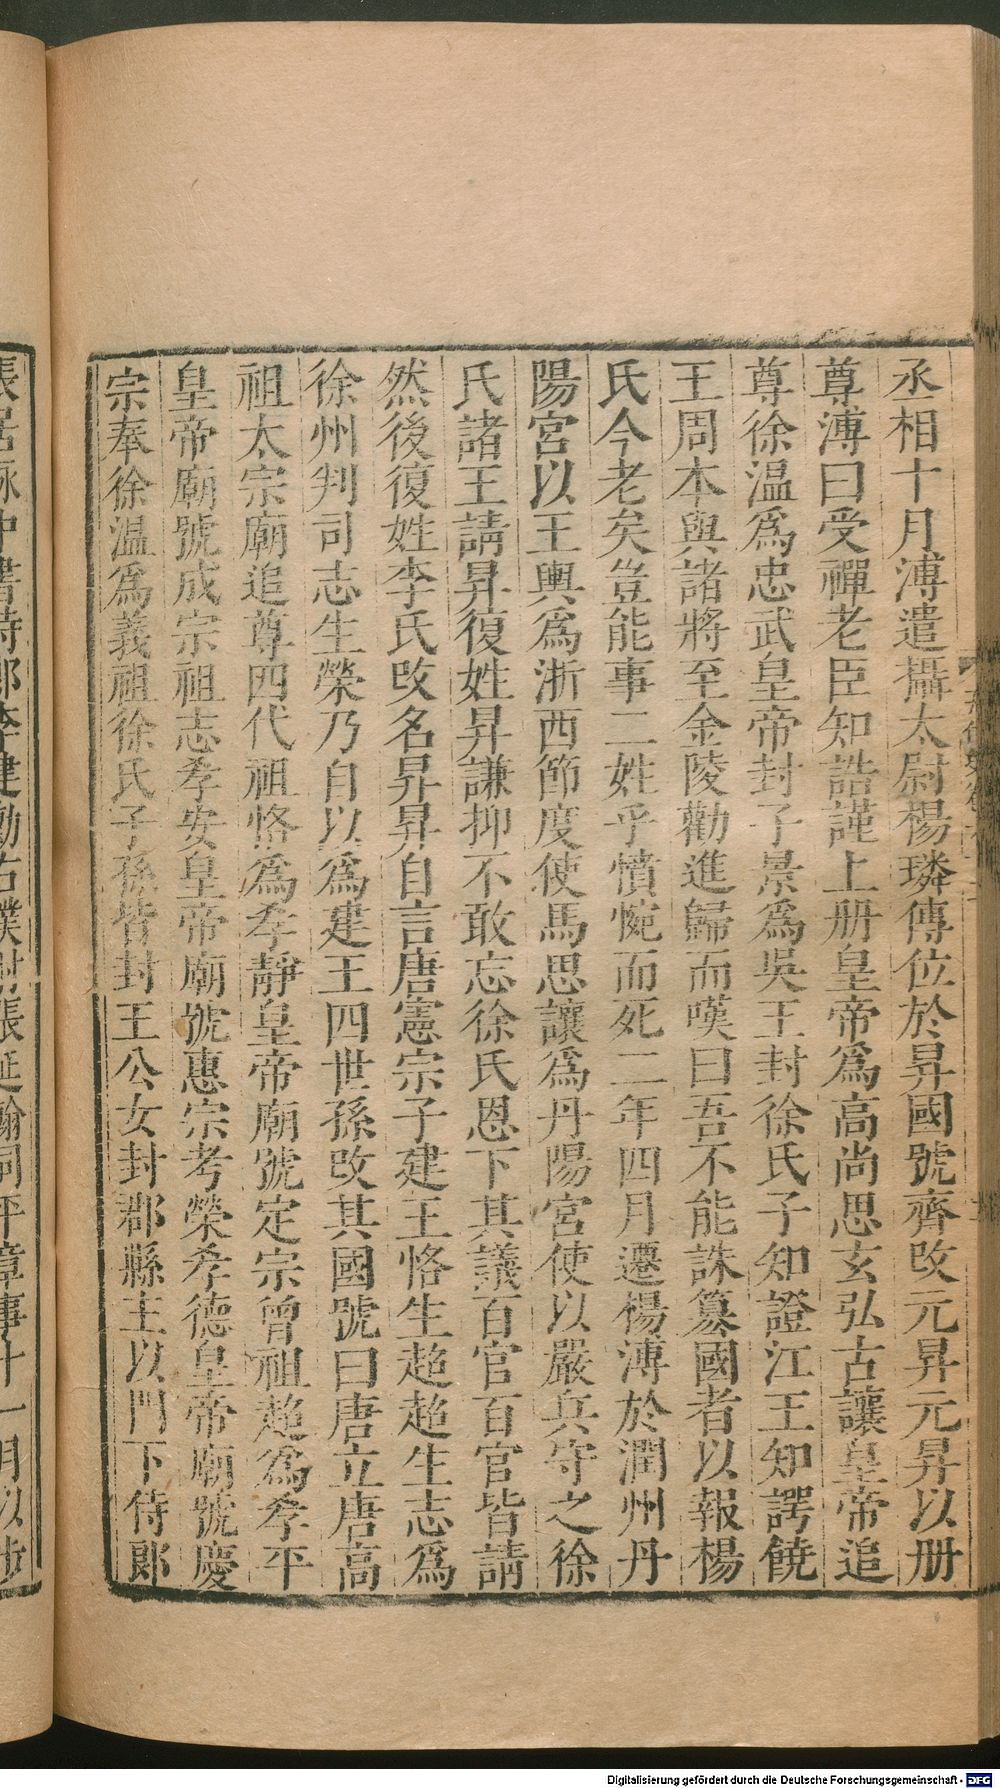 丞相十月溥遣攝太尉楊璘傳位於昇國號齊改元昇元昇以册
尊溥曰受禪老臣知誥謹上册皇帝爲高尚思玄弘古讓皇帝追
尊徐温爲忠武皇帝封子景爲吳王封徐氏子知證江王知諤饒
王周本與諸將至金陵勸進歸而嘆曰吾不能誅篡國者以報楊
氏今老矣豈能事二姓乎憤惋而死二年四月遷楊溥於潤州丹
陽宮以王輿爲浙西節度使馬思讓爲丹陽宮使以嚴兵守之徐
氏諸王請昇復姓昇謙抑不敢忘徐氏恩下其議百官百官皆請
然後復姓李氏改名昇昇自言唐憲宗子建王恪生超超生志爲
徐州判司志生榮乃自以爲建王四世孫改其國號曰唐立唐高
祖太宗廟追尊四代祖恪爲孝靜皇帝廟號定宗曾祖超爲孝平
皇帝廟號成宗祖志孝安皇帝廟號惠宗考榮孝德皇帝廟號慶
宗奉徐温爲義祖徐氏子孫皆封王公女封郡縣主以門下侍郎
張居詠中書侍郎李建勳右僕射張延翰同平章事十一月以步
Digitalisierung gefördert durch die Deutsche Forschungsgemeinschaft - DFG